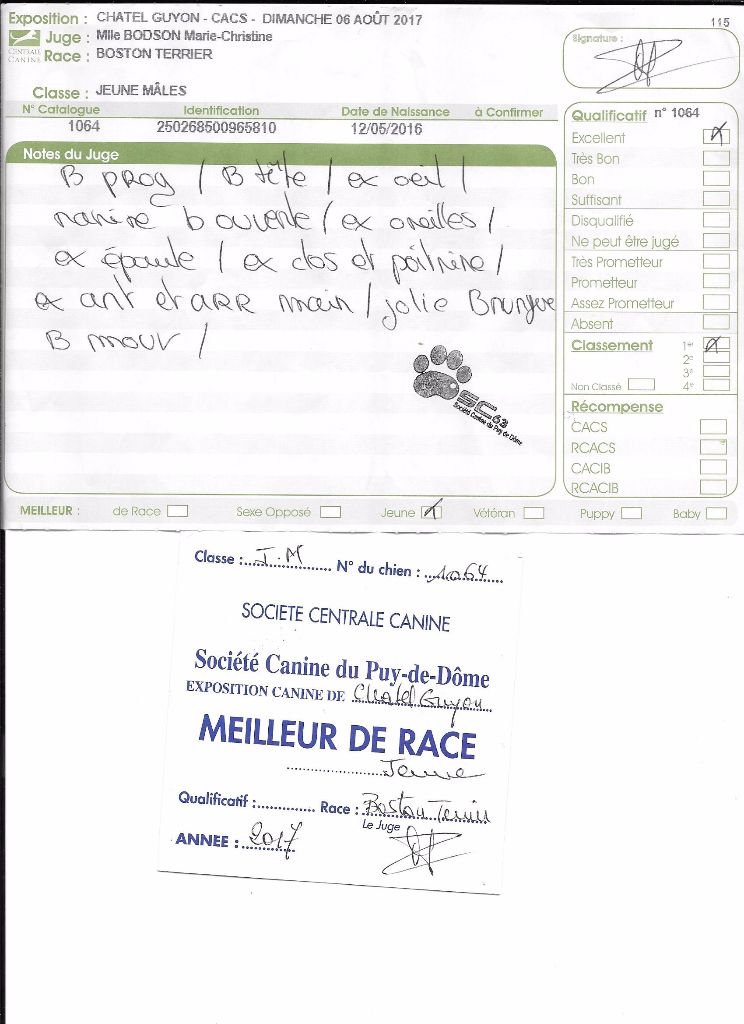 Exposition : CHATEL GUYON - CACS - DIMANCHE 06 AOÛT 2017
115
CENTRALE CANINE
Juge : Mlle BODSON Marie-Christine
Race : BOSTON TERRIER
Signature :
Classe : JEUNE MÂLES
N° Catalogue Identification Date de Naissance à Confirmer
1064 250268500965810 12/05/2016
Notes du Juge
B prog / B tête / ex oeil /
narine b ouverte / ex oreilles /
ex épaule / ex dos et poitrine /
ex ant et ARR main / jolie
B mouv /
SC 63
Société Canine du Puy de Dôme
Qualificatif n° 1064
Excellent
Très Bon
Bon
Suffisant
Disqualifié
Ne peut être jugé
Très Prometteur
Prometteur
Assez Prometteur
Absent
Classement 1er
2e
3e
Non Classé 4e
Récompense
CACS
RCACS
CACIB
RCACIB
MEILLEUR : de Race Sexe Opposé Jeune Vétéran Puppy Baby
Classe : J.M N° du chien : 1064
SOCIETE CENTRALE CANINE
Société Canine du Puy-de-Dôme
EXPOSITION CANINE DE Chatel Guyon
MEILLEUR DE RACE
Jeune
Qualificatif : Race : Boston Terrier
Le Juge
ANNEE : 2017